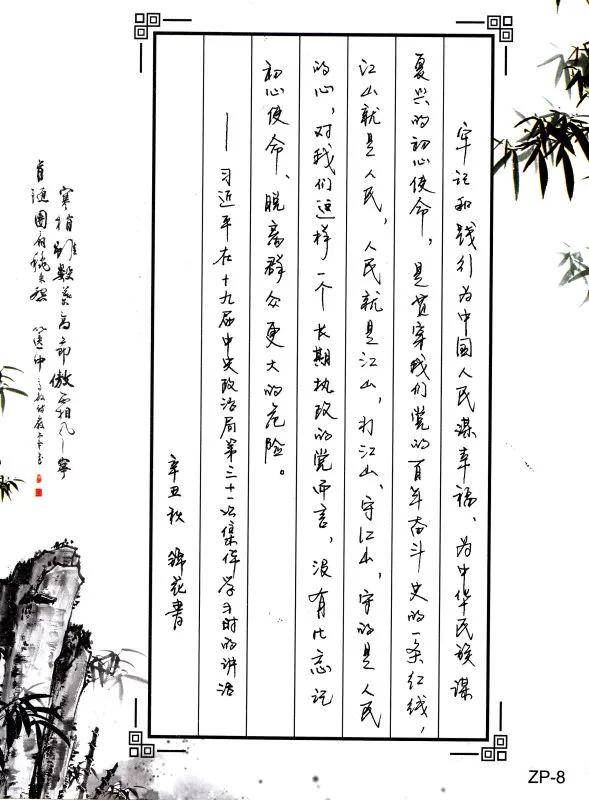 牢记和践行为中国人民谋幸福、为中华民族谋
复兴的初心使命，是贯穿我们党的百年奋斗史的一条红线，
江山就是人民，人民就是江山，打江山、守江山，守的是人民
的心，对我们这样一个长期执政的党而言，没有比忘记
初心使命、脱离群众更大的危险。
——习近平在十九届中央政治局第三十一次集体学习时的讲话
辛丑秋 锦花书
寒梢虽数叶 高节傲霜风 宁
ZP-8